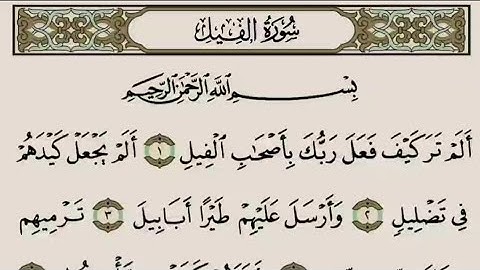 سُورَةُ الفِيلِ
بِسْمِ اللَّهِ الرَّحْمَٰنِ الرَّحِيمِ
أَلَمْ تَرَ كَيْفَ فَعَلَ رَبُّكَ بِأَصْحَابِ الْفِيلِ ١ أَلَمْ يَجْعَلْ كَيْدَهُمْ
فِي تَضْلِيلٍ ٢ وَأَرْسَلَ عَلَيْهِمْ طَيْرًا أَبَابِيلَ ٣ تَرْمِيهِم